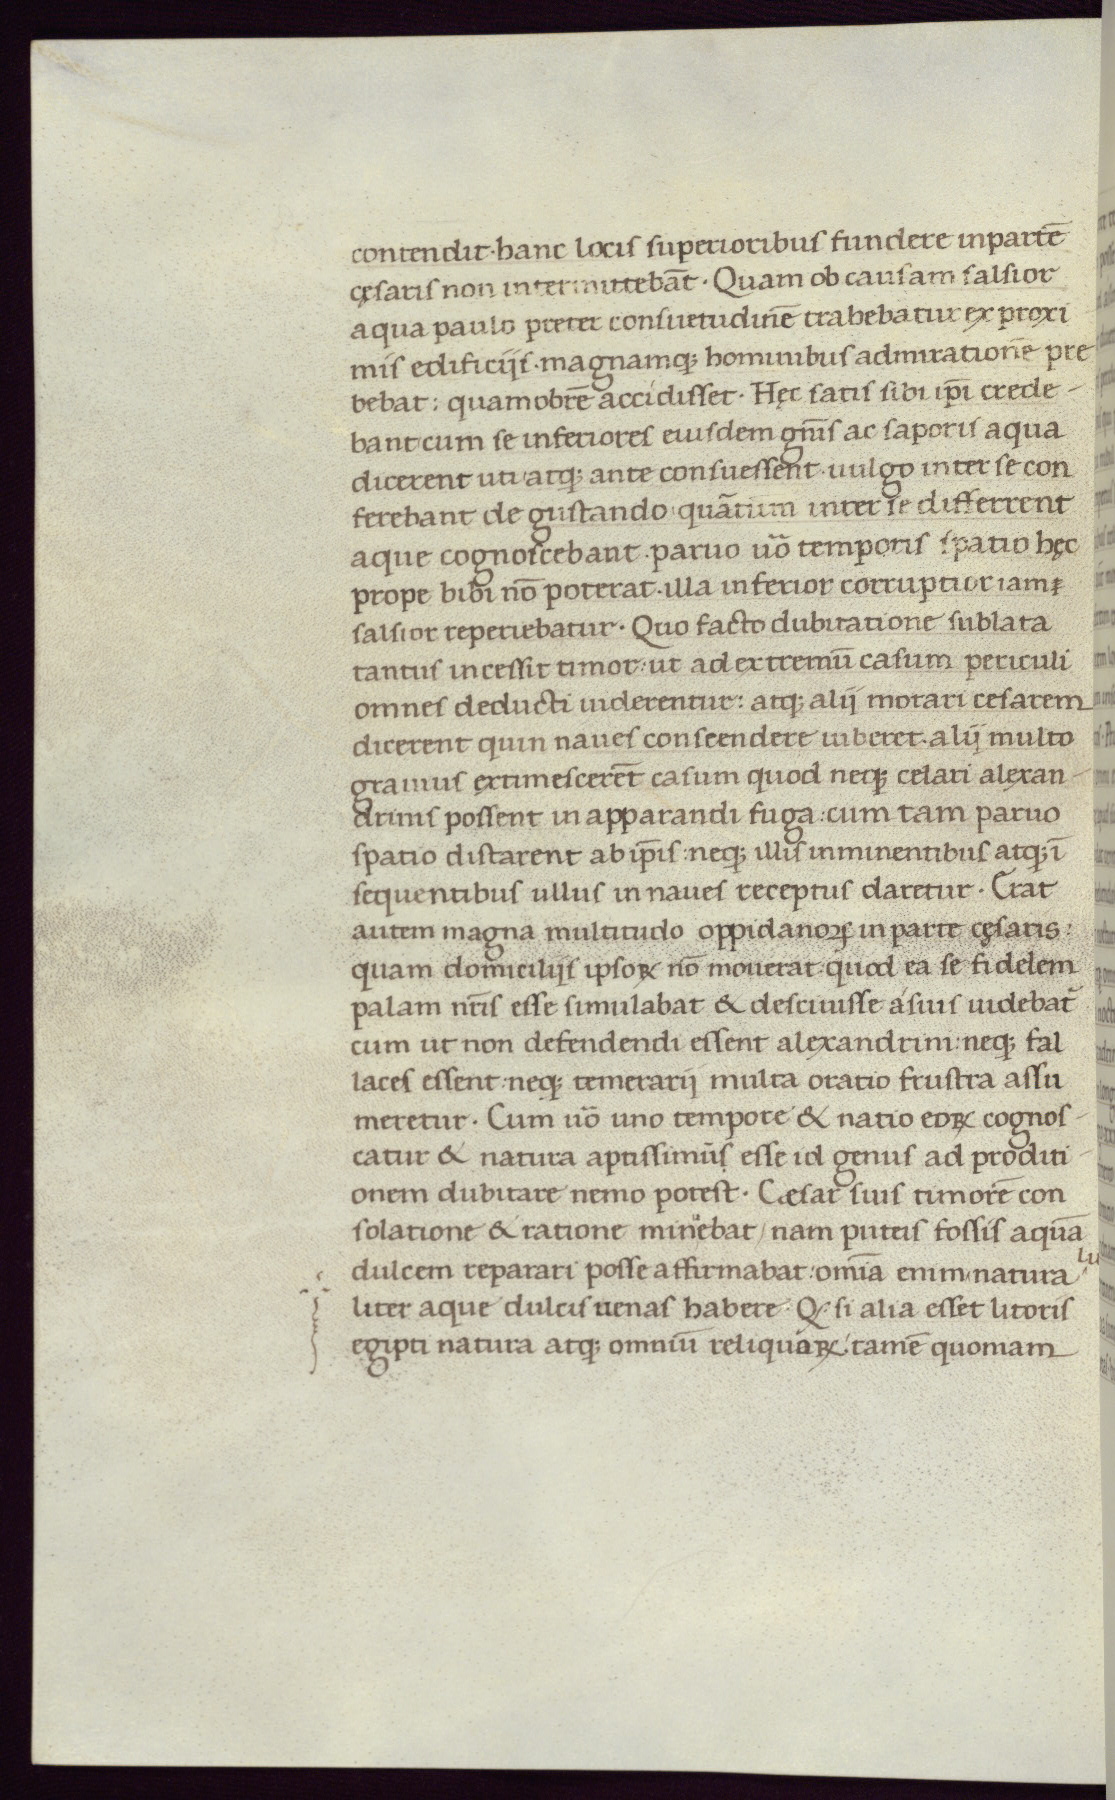 contendit · hanc locis superioribus fundere inpartē
cęsaris non intermittebāt · Quam ob causam salsior
aqua paulo preter consuetudinē trahebatur ex proxi
mis edificijs · magnamq; hominibus admirationē pre
bebat : quamobrē accidisset · Hęc satis sibi ip̄i crede-
bant cum se inferiores eiusdem gn̄is ac saporis aqua
dicerent uti atq; ante consuessent · uulgo inter se con
ferebant de gustando quātum inter se differrent
aque cognoscebant · paruo uō temporis spatio hęc
prope bibi nō poterat · illa inferior corruptior iamꝙ
salsior reperiebatur · Quo facto dubitatione sublata
tantus incessit timor : ut ad extremū casum periculi
omnes deducti uiderentur : atq; alij morari cesarem
dicerent quin naues conscendere iuberet · alij multo
grauius extimescerēt casum quod neq; celari alexan-
drinis possent in apparandi fuga : cum tam paruo
spatio distarent ab ip̄is : neq; illis inminentibus atq; ī
sequentibus ullus in naues receptus daretur · Erat
autem magna multitudo oppidanoꝝ in parte cęsaris :
quam domicilijs ipsoꝝ nō mouerat · quod ea se fidelem
palam nr̄is esse simulabat & desciuisse a suis uidebat̄
cum ut non defendendi essent alexandrini : neq; fal
laces essent : neq; temerarij multa oratio frustra assu
meretur · Cum uō uno tempore & natio eoꝝ cognos-
catur & natura aptissimūs esse id genus ad proditi-
onem dubitare nemo potest · Cæsar suis timorē con
solatione & ratione minuebat / nam puteis fossis aquā
dulcem reparari posse affirmabat : omīa enim natura lu
liter aque dulcis uenas habere · Q si alia esset litoris
egipti natura atq; omniū reliquoꝝ : tamē quoniam